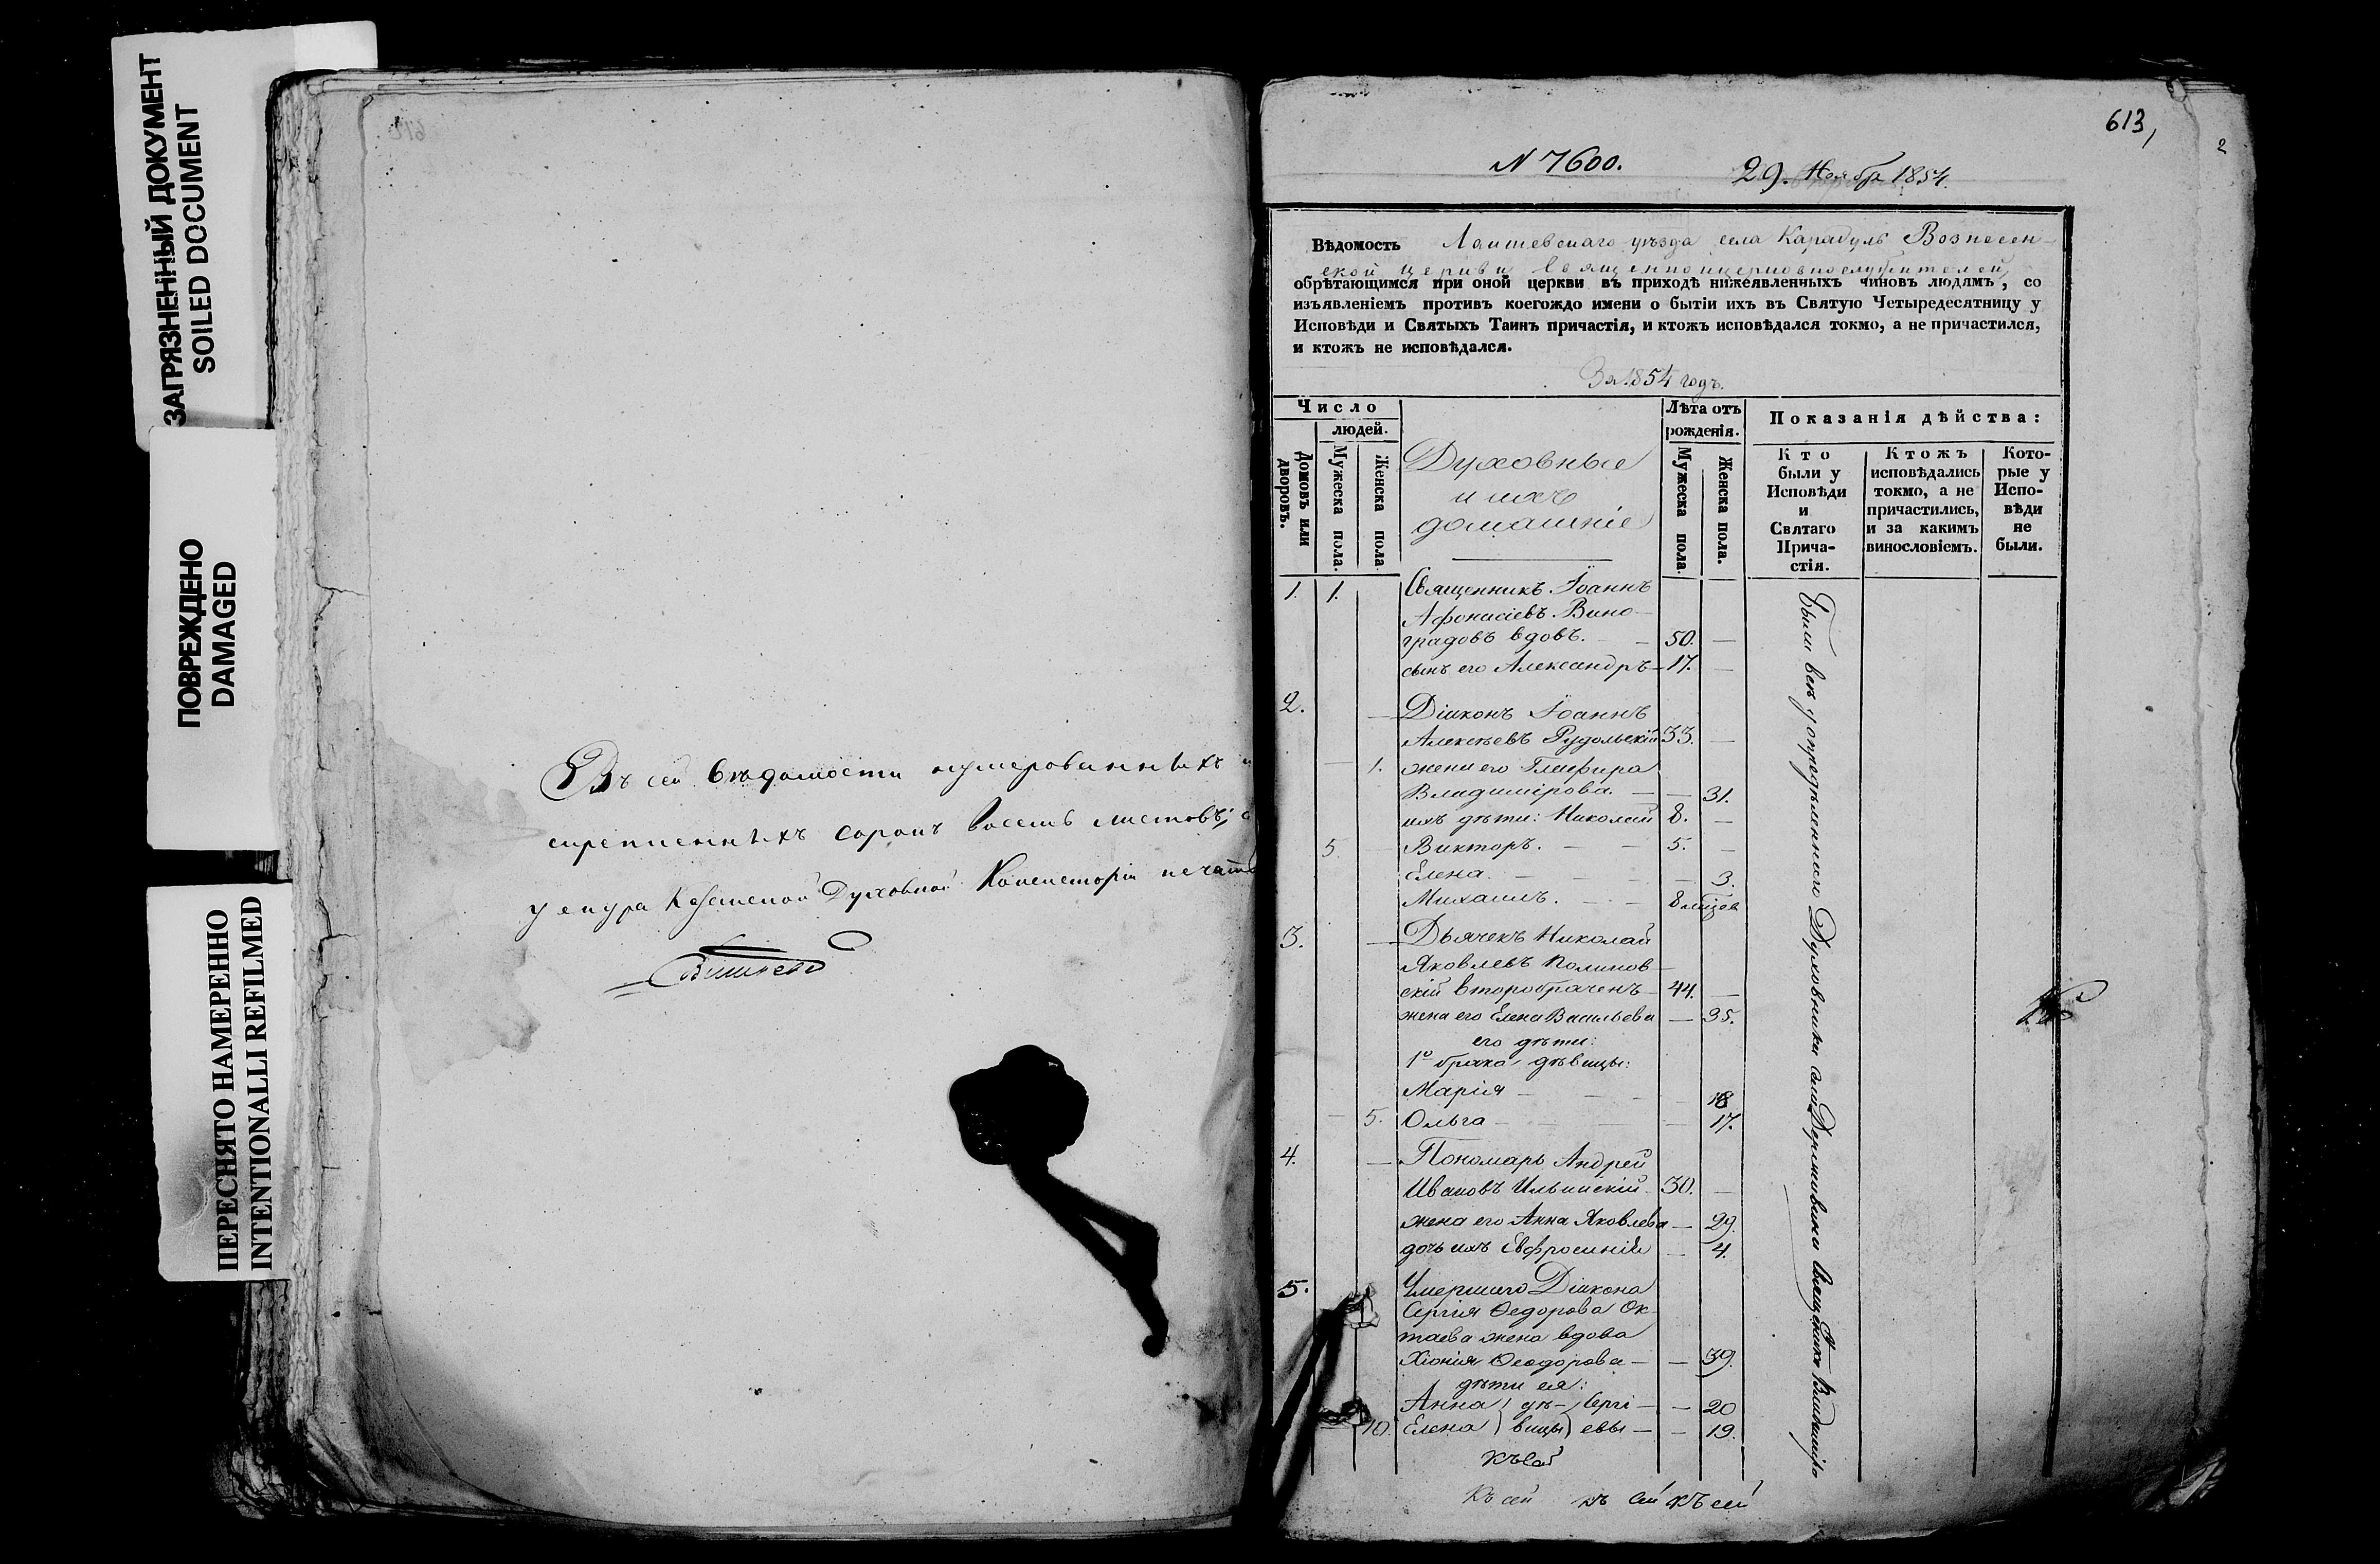 ЗАГРЯЗНЕННЫЙ ДОКУМЕНТ
SOILED DOCUMENT
ПОВРЕЖДЕНО
DAMAGED
ПЕРЕСНЯТО НАМЕРЕННО
INTENTIONALLI REFILMED
Въ сей вѣдомости нумерованныхъ и
скрепленныхъ сорокъ восемь листовъ;
у снура Казанской Духовной Консисторіи печать
613
2
N 7600.
29. Ноябр 1854.
Вѣдомость Лаишевскаго уѣзда села Карадулъ Вознесен-
ской церкви священноицерковнослужителей,
обрѣтающимся при оной церкви въ приходѣ нижеявленныхъ чиновъ людямъ, со
изъявленіемъ противъ коегождо имени о бытіи ихъ въ Святую Четыредесятницу у
Исповѣди и Святыхъ Таинъ причастія, и ктожъ исповѣдался токмо, а не причастился,
и ктожъ не исповѣдался.
За 1854 годъ.
Число
людей.
Домовъ или дворовъ.
Мужеска пола.
Женска пола
Духовные
и ихъ
домашніе
Лѣта отъ
рожденія.
Мужеска пола.
Женска пола.
Показанія дѣйства:
Кто
были у
Исповѣди
и
Святаго
Прича-
стія.
Ктожъ
исповѣдались
токмо, а не
причастились,
и за какимъ
винословіемъ.
Кото-
рые у
Испо-
вѣди
не
были.
1. 1. Священникъ Іоаннъ
Афонасіевъ Вино-
градовъ вдовъ. — 50. —
сынъ его Александръ — 17. —
2. — Діаконъ Іоаннъ
Алексѣевъ Рудольскій 33. —
— 1. жена его Глафира
Владимірова. — — 31.
ихъ дѣти: Николай 8. —
5. Викторъ. — — 5. —
Елена. — — — 3.
Михаилъ. — — 8 мѣсяцев
3. — Дьячекъ Николай
Яковлевъ Полинов-
скій второбраченъ — 44. —
жена его Елена Васильева — 35.
его дѣти:
1о брака дѣвицы:
Марія — — — 18
— 5. Ольга — — — 17.
4. — Пономарь Андрей
Ивановъ Ильинскій 30. —
жена его Анна Яковлева — 29.
дочь ихъ Евфросинія — 4.
5. Умершаго Діакона
Сергія Ѳедорова Ок-
таева жена вдова
Хіонія Ѳеодорова — — 39.
дѣти ея:
Анна) дѣ-) Сергі- — — 20
10. Елена) вицы) евы — — 19.
Были всѣ у опредѣленнаго Духовника села Державина Священника Владиміра
Къ сей
Къ сей къ сей къ сей